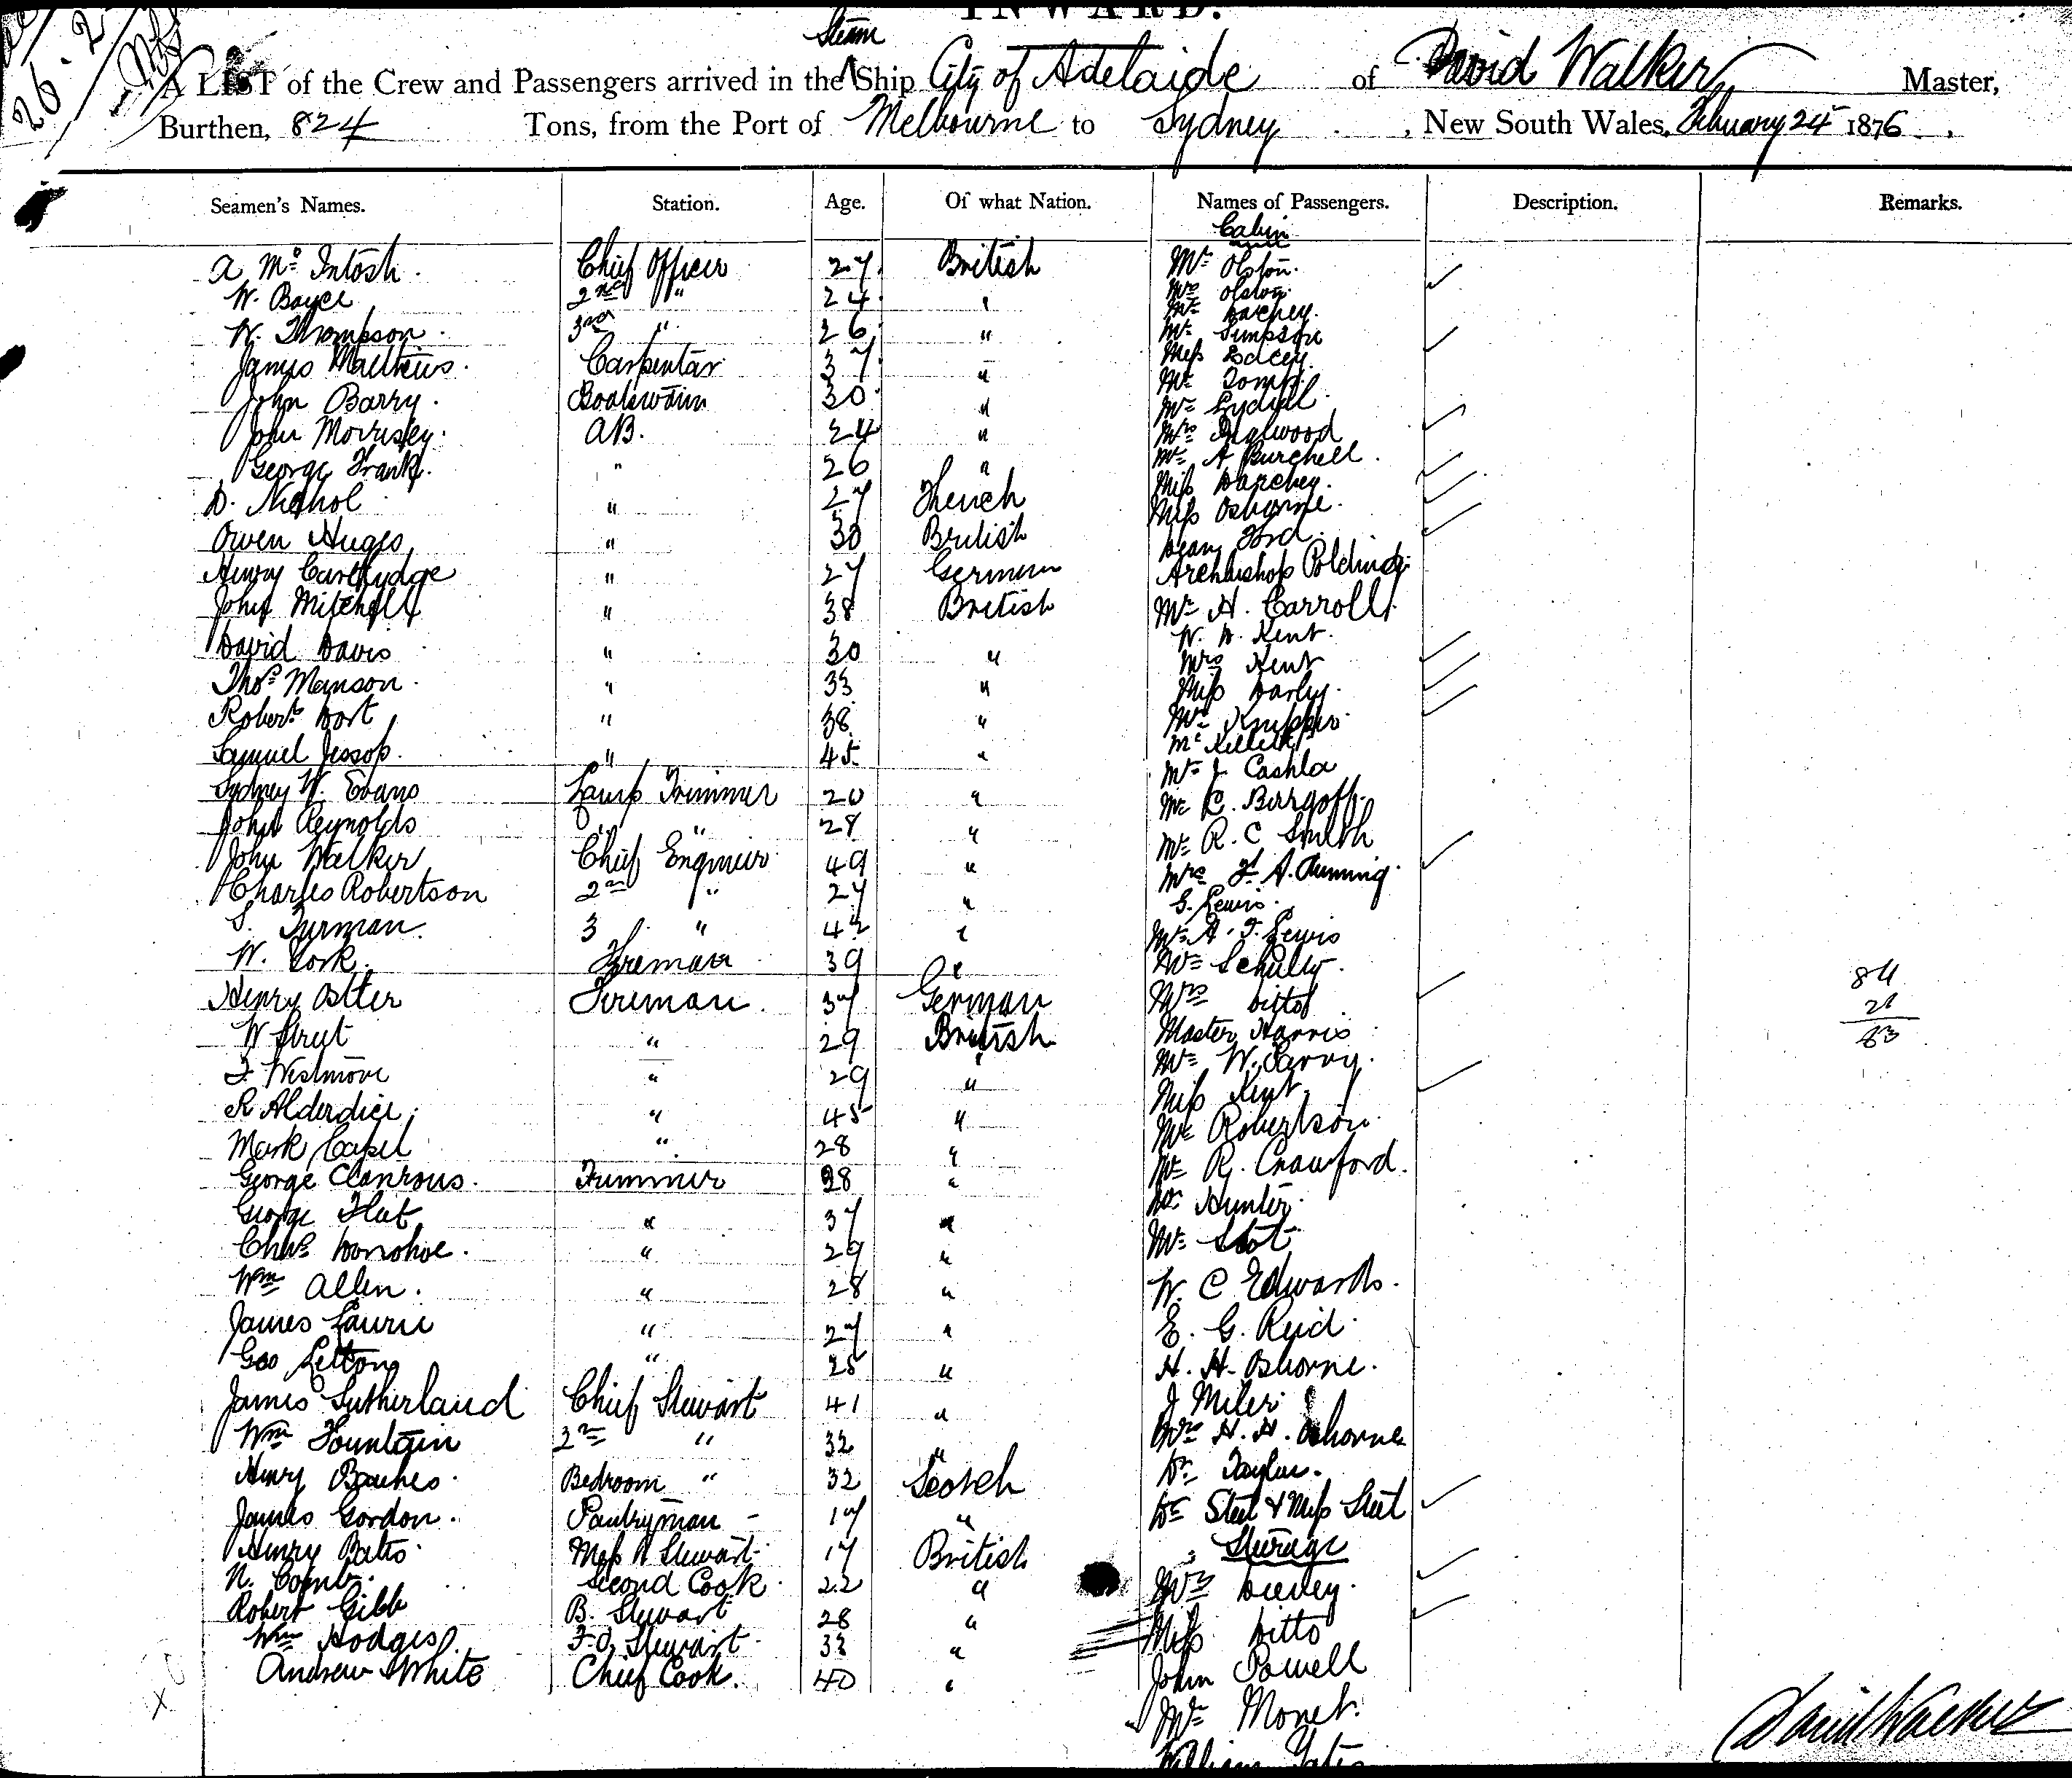 INWARD.
Steam
A LIST of the Crew and Passengers arrived in the Ship City of Adelaide of David Walker Master,
Burthen, 824 Tons, from the Port of Melbourne to Sydney, New South Wales, February 24 1876.
Seamen's Names. Station. Age. Of what Nation. Names of Passengers. Description. Remarks.
Cabin
A Mc Intosh. Chief Officer 27 British Mr Olston.
W. Boyce 2nd " 24 " Mrs Olston
Mr Darchey.
W. Thompson. 3rd " 26 " Mr Simpson
James Matthews. Carpenter 37 " Miss
Mr
John Barry. Boatswain 30 " Mr
John Morrisey. AB. 24 " Mrs Inglwood
George Frank. " 26 " Mr A Burchell.
D. Nichol " 27 French Miss Darchey.
Miss Osborne.
Owen Huges " 30 British Dean Ford.
Henry Carthydge " 27 German Archbishop Polding
John Mitchell " 38 British Mr H. Carroll
W. D. Kent.
David Davis " 30 " Mrs Kent
Thos Manson. " 33 " Miss Darley.
Robert Dort " 38 " Mr
Mr
Samuel Jessop. " 45 " Mr J. Cashla
Sydney W. Evans Lamp Trimmer 20 " Mr C. Birrgoff.
John Reynolds " " 28 " Mr R. C Smith
John Walker Chief Engineer 49 " Mrs F. A. Cumming.
Charles Robertson 2nd " 27 " G. Lewis.
S. Turman. 3 " 42 " Mr A. F. Lewis
W. York. Fireman 39 " Mr Schultz.
Henry Ostler Fireman 37 German Mrs Ditto 84
21
W Strut " 29 British Master Harris 63
F. Westmore " 29 " Mr W. Parry.
R Alderdice. " 45 " Miss Kent.
Mr Robertson.
Mark Capel " 28 " Mr R. Crawford.
George Clanrous. Trimmer 28 " Mr Hunter.
George Flut " 37 " Mr Scot
Chas Donohoe. " 29 " W. C Edwards.
Wm Allen. " 28 " E. G. Reid.
James Laurie " 27 " H. H. Osborne.
Geo Letton " 25 " J Miler
James Sutherland Chief Stewart 41 " Mrs H. H. Osborne
Wm Fountain 2nd " 32 " Dr Taylor.
Henry Barnes. Bedroom " 32 Scotch Dr Steel & Miss Steel
James Gordon. Pantryman - 17 " Steerage
Henry Batts. Mess R Stewart. 17 British Mrs Dieney.
N. Comb. Second Cook. 22 " Miss Ditto
Robert Gibb B. Stewart 28 " John Powell
Wm Hodges. F.C. Stewart. 33 " Mr Monet.
Andrew White Chief Cook. 40 " William Yates
David Walker